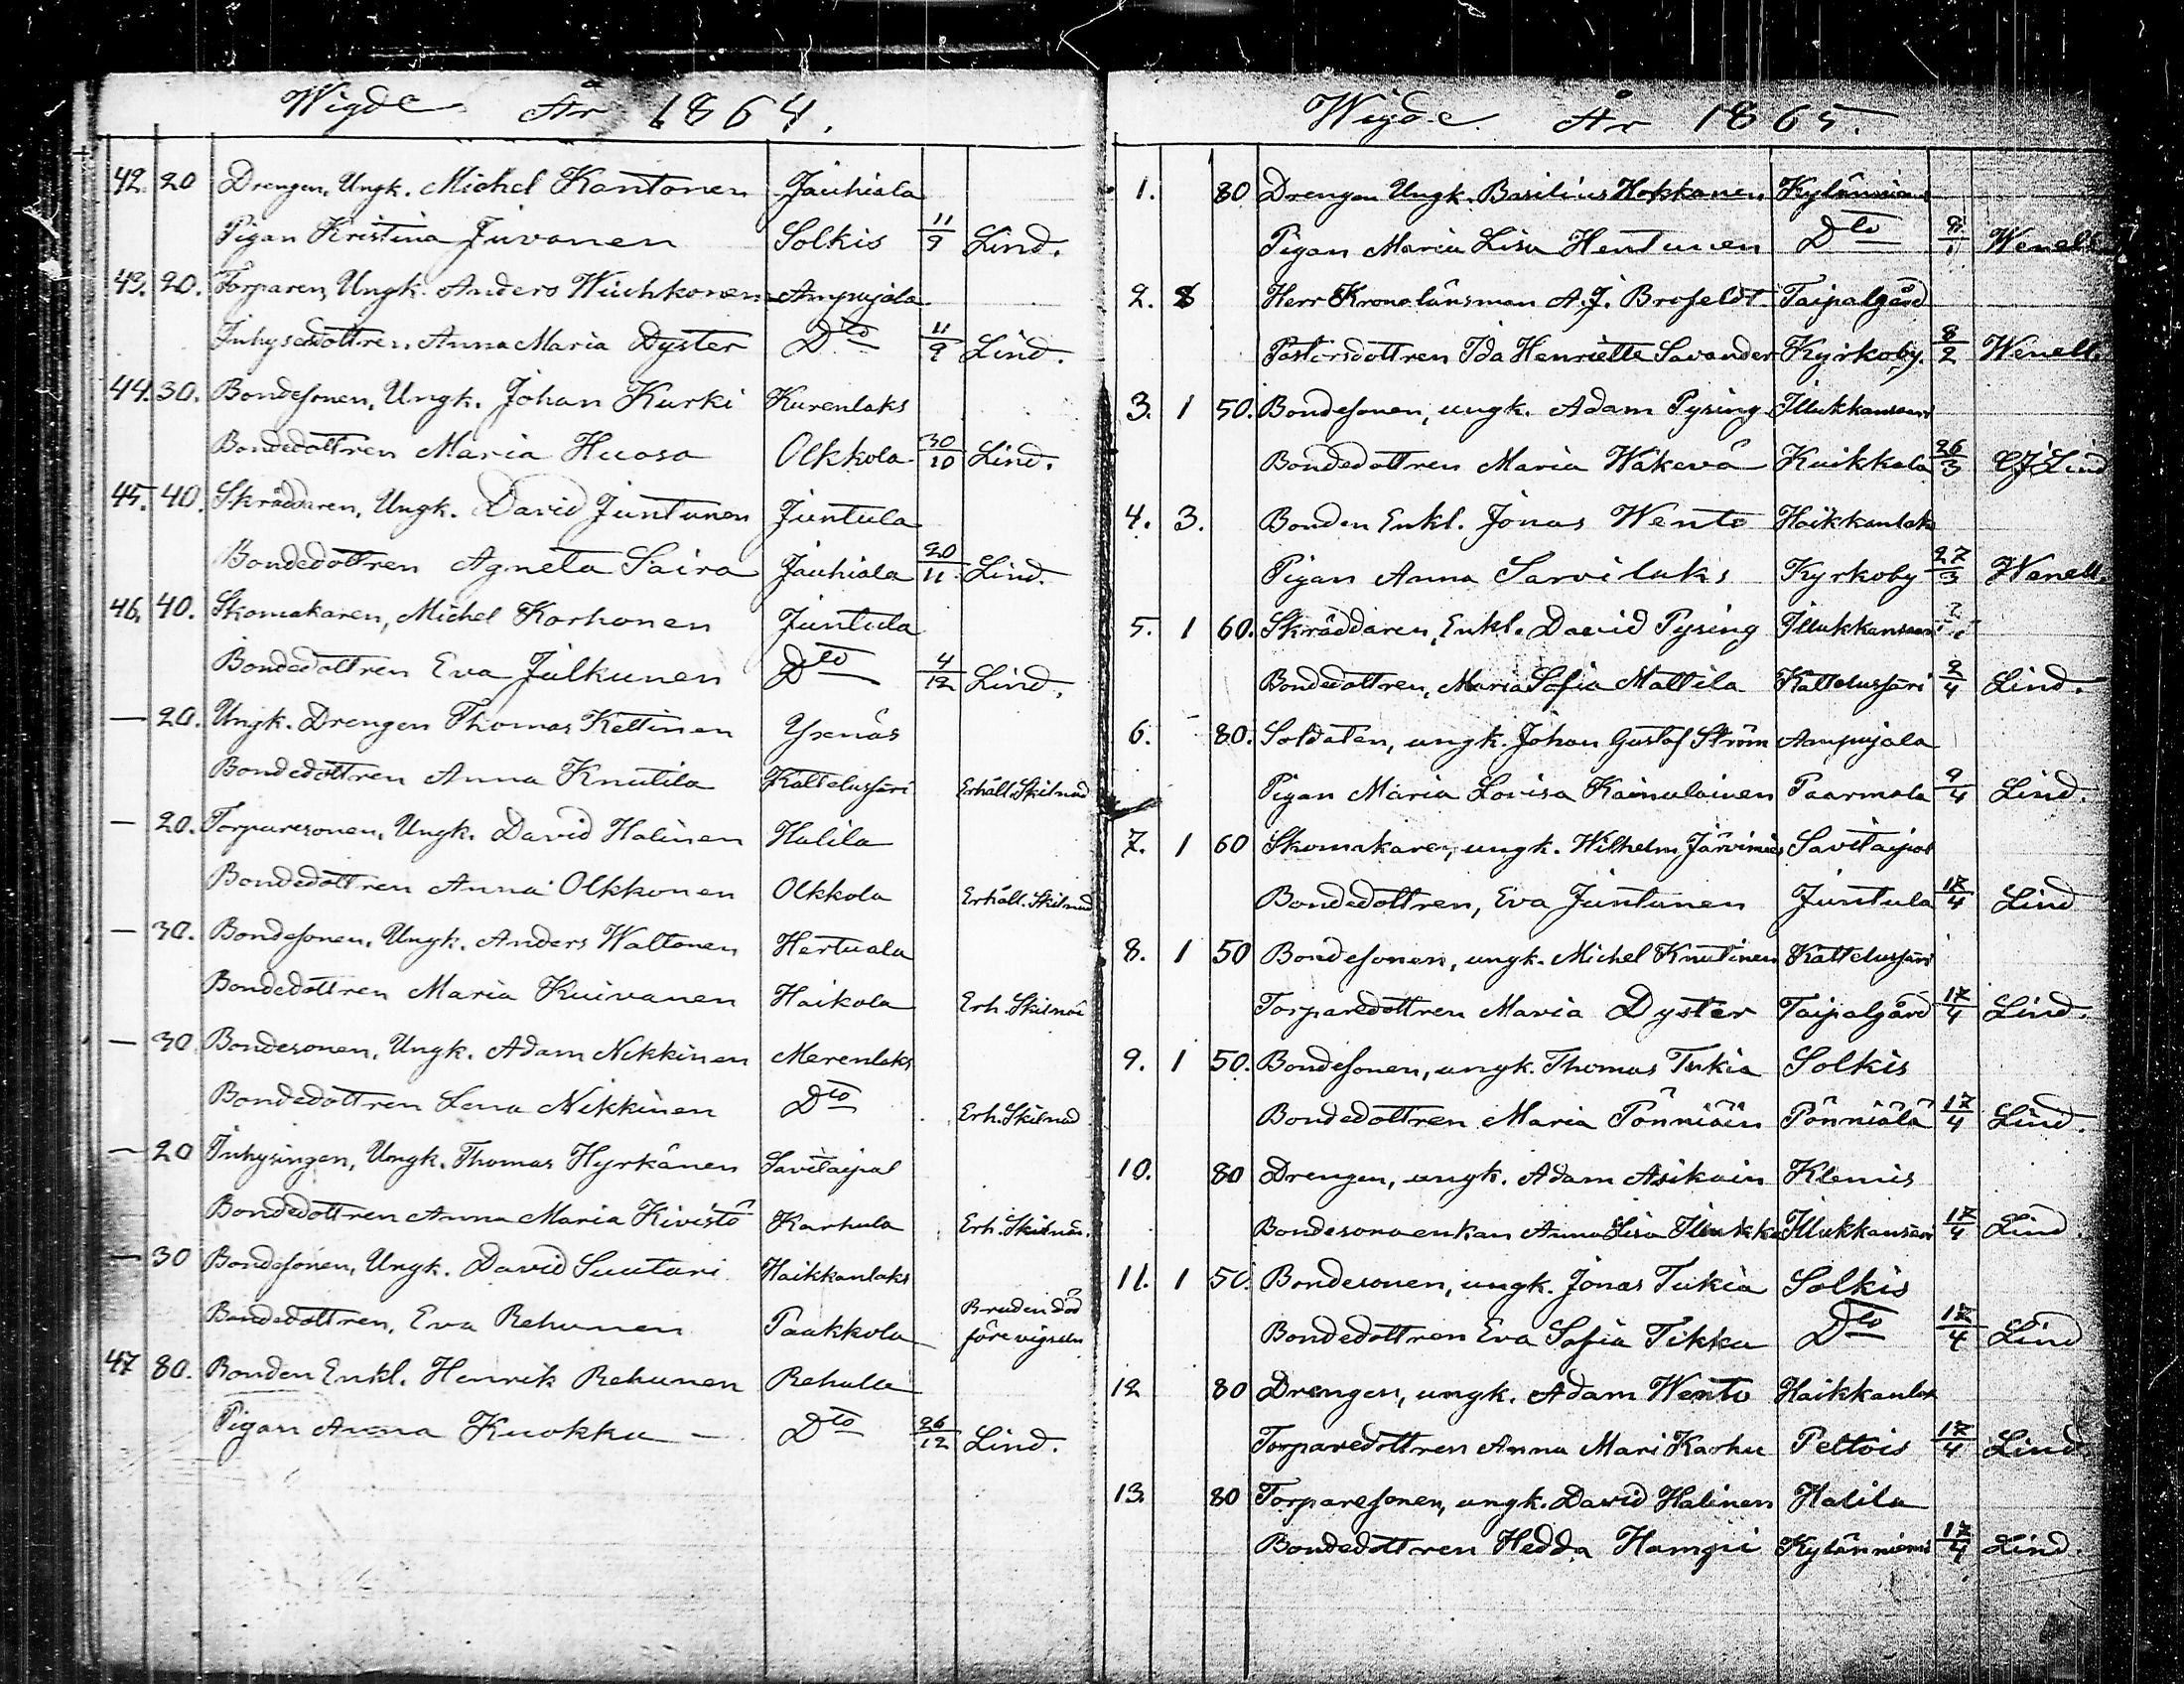 Wigde År 1864.
42. 20 Drengen, Ungk. Michel Kontonen Jauhiala
Pigan Kristina Juvonen Solkis 11/9 Lind.
43. 20. Torparen, Ungk. Anders Wiuhkonen Ampujala
Inhysesdottren Anna Maria Dyster Dto 11/9 Lind.
44. 30. Bondesonen, Ungk. Johan Kurki Kurenlaks
Bondedottren Maria Huosa Olkkola 30/10 Lind.
45. 40. Skräddaren, Ungk. David Juntunen Juntula
Bondedottren Agneta Saira Jauhiala 20/11. Lind.
46. 40. Skomakaren, Michel Korhonen Juntula
Bondedottren Eva Julkunen Dto 4/12 Lind.
— 20. Ungk. Drengen Thomas Kettinen Yxnäs
Bondedottren Anna Knutila Kattelussari Erhåll. Skilnad
— 20. Torparesonen, Ungk. David Halinen Halila
Bondedottren Anna Olkkonen Olkkola Erhåll. Skilnad
— 30. Bondesonen, Ungk. Anders Waltonen Hertuala
Bondedottren Maria Kuivanen Haikola Erh. Skilnad
— 30 Bondesonen, Ungk. Adam Nikkinen Merenlaks
Bondedottren Lena Nikkinen Dto Erh. Skilnad
— 20 Inhysingen, Ungk. Thomas Hyrkänen Savitaipal
Bondedottren Anna Maria Kivistö Karhula Erh. Skilnad.
— 30 Bondesonen, Ungk. David Suutari Haikkanlaks
Bondedottren, Eva Rehunen Paakkola Bruden död före vigseln
47 80. Bonden Enkl. Henrik Rehunen Rehula
Pigan Anna Kuokka — Dto 26/12 Lind.
Wigde År 1865.
1. 80 Drengen Ungk. Basilius Hokkanen Kylänniemi
Pigan Maria Lisa Hentunen Dto /1 Wenell
2. 8 Herr Kronolänsman A. J. Brofeldt Taipalgård
Pastorsdottren Ida Henriette Savander Kyrkoby. 8/2 Wenell
3. 1 50. Bondesonen, ungk. Adam Pysing Illukkansaari
Bondedottren Maria Wäkevä Kuikkala 26/3 CJ Lind
4. 3. Bonden Enkl. Jonas Wento Haikkanlaks
Pigan Anna Sarvilaks Kyrkoby 27/3 Wenell.
5. 1 60. Skräddaren, Enkl. David Pysing Illukkansaari
Bondedottren, Maria Sofia Mattila Kattelussari 2/4 Lind.
6. 80. Soldaten, ungk. Johan Gustaf Ström Ampujala
Pigan Maria Lovisa Kainulainen Paarmala 9/4 Lind.
7. 1 60 Skomakaren, ungk. Wilhelm Järvinies Savitaipal
Bondedottren, Eva Juntunen Juntula 17/4 Lind
8. 1 50 Bondesonen, ungk. Michel Knutinen Kattelussari
Torparedottren Maria Dyster Taipalgård 17/4 Lind.
9. 1 50. Bondesonen, ungk. Thomas Tukia Solkis
Bondedottren Maria Pönniäin Pönniälä 17/4 Lind.
10. 80 Drengen, ungk. Adam Asikain Klemis
Bondesonaenkan Anna Lisa Illukka Illukkansari 17/4 Lind.
11. 1 50. Bondesonen, ungk. Jonas Tukia Solkis
Bondedottren Eva Sofia Tikka Dto 17/4 Lind
12 80 Drengen, ungk. Adam Wento Haikkanlak
Torparedottren Anna Mari Karhu Peltois 17/4 Lind.
13. 80 Torparesonen, ungk. David Halinen Halila
Bondedottren Hedda Hamgii Kylänniemi 17/4 Lind.